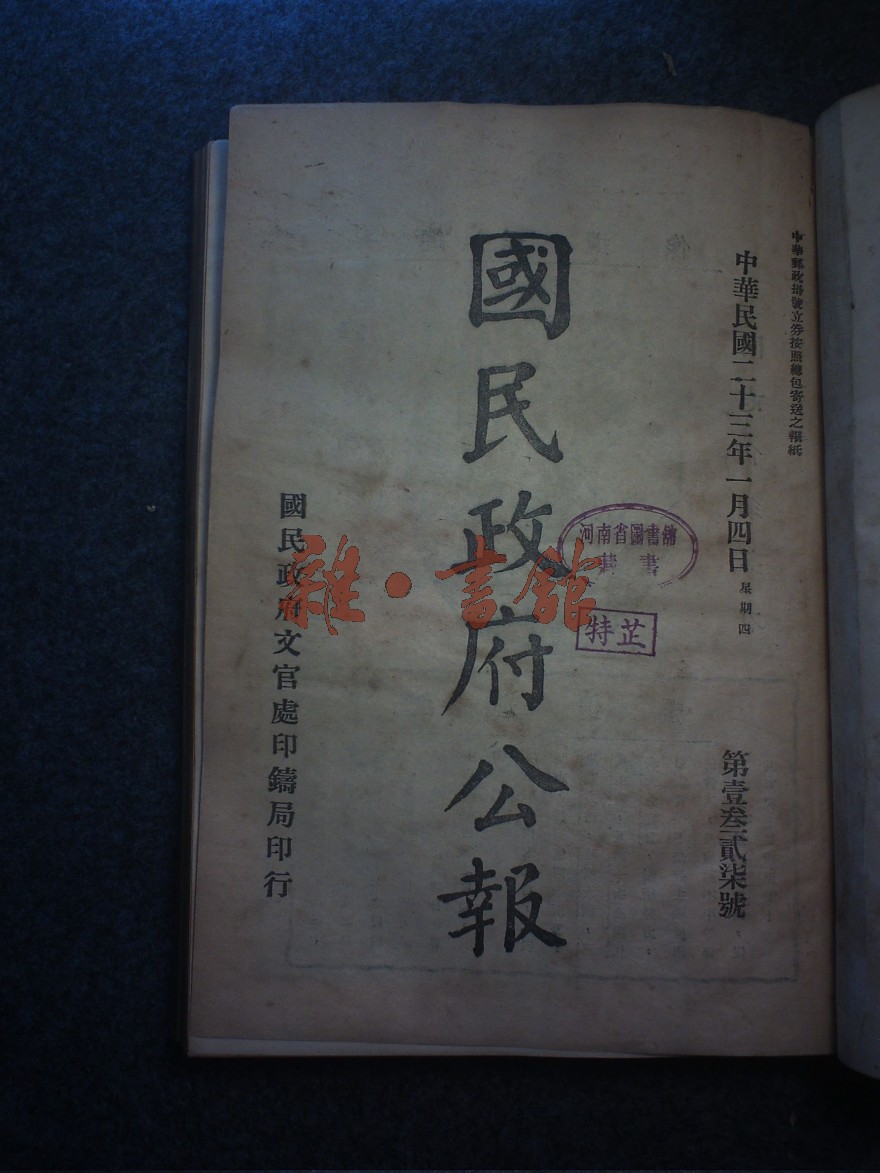 中華郵政掛號立券按照總包寄送之報紙
中華民國二十三年一月四日 星期四
第壹叁貳柒號
河南省圖書館
藏書
特芷
國民政府公報
雜·書館
國民政府文官處印鑄局印行